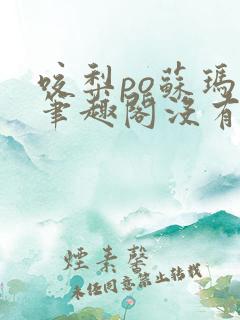 咬梨po蘇瑪
筆趣閣沒有
煙素馨
未经同意禁止转载